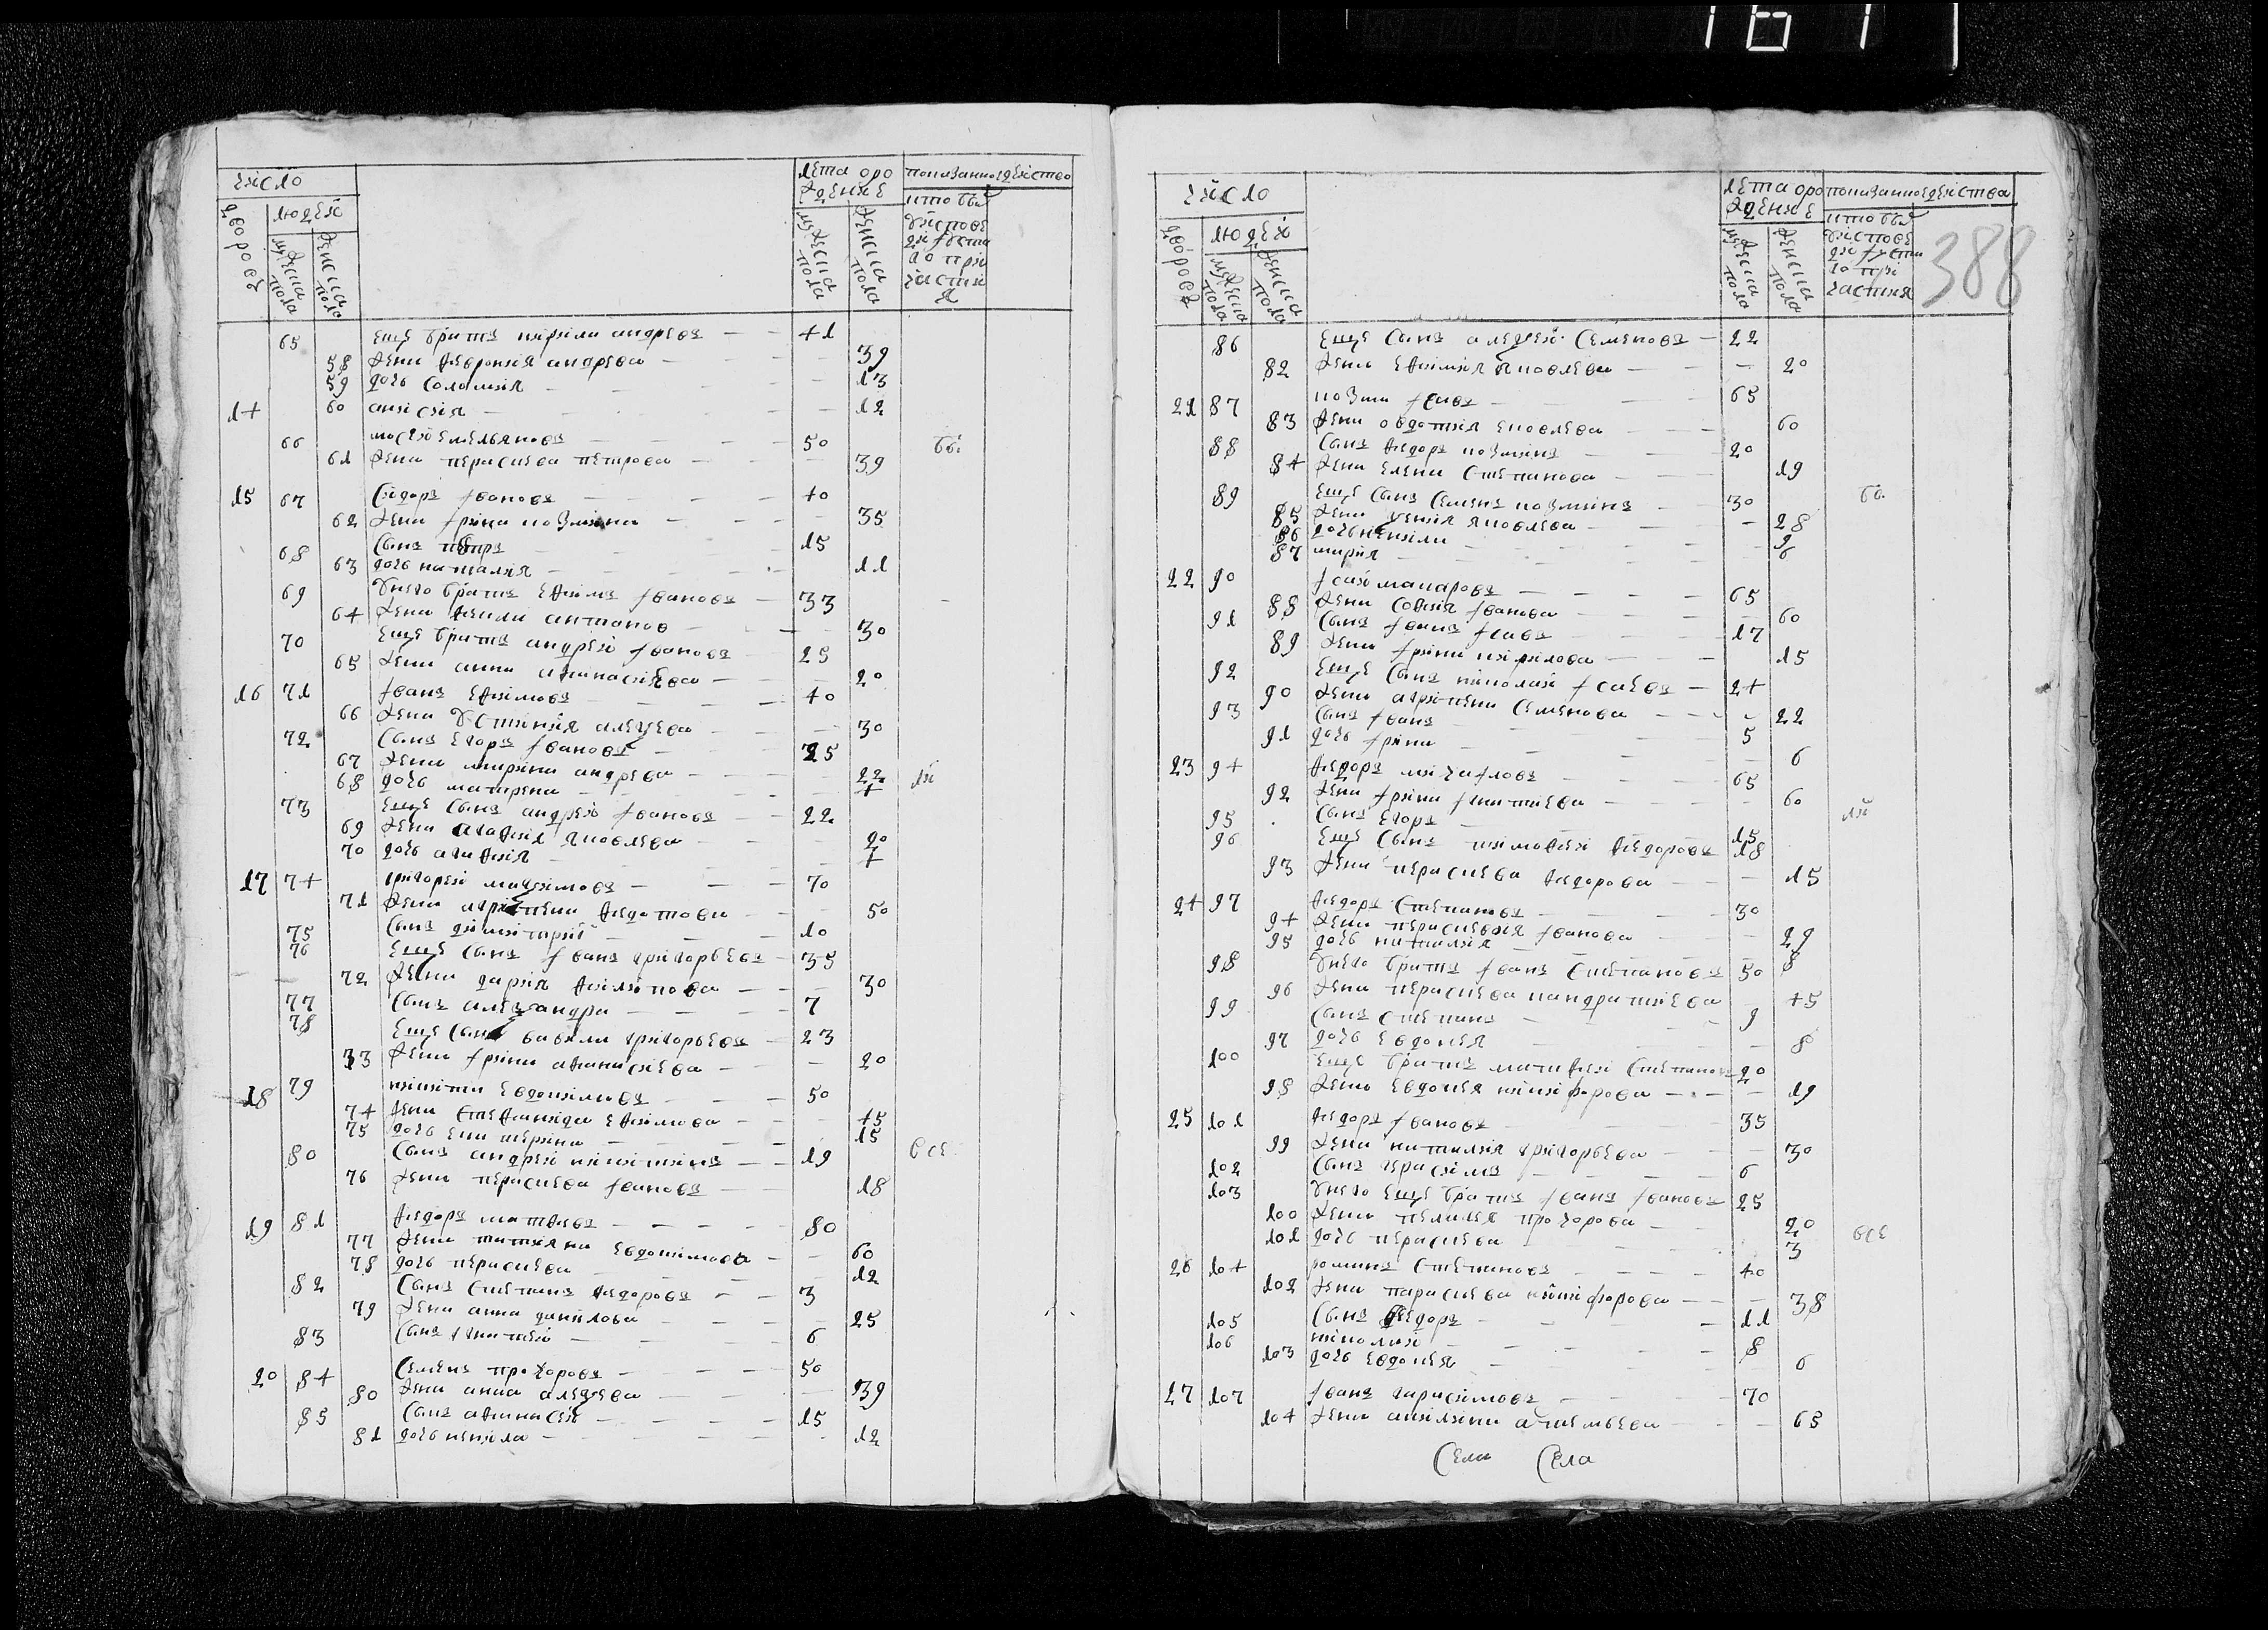 161
число
дворовъ
людей
мужеска пола
женска пола
лета от рождения
мужеска пола
женска пола
показание действа
кто был у исповеди и святаго причастия
65 еще братъ кирила андреевъ — 41
58 жена феврония андреева — 39
59 дочь соломия — 13
14 60 анисия — 12
66 мосей емельяновъ — 50 бы
61 жена параскева петрова — 39
15 67 сидоръ ивановъ — 40
62 жена ирина козмина — 35
68 сынъ петръ — 15
63 дочь наталия — 11
69 у него братъ ефимъ ивановъ — 33
64 жена фекла антипова — 30
70 еще братъ андрей ивановъ — 25
65 жена анна афанасиева — 20
16 71 иванъ ефимовъ — 40
66 жена устиния алексеева — 30
72 сынъ егоръ ивановъ — 25
67 жена марина андреева — 22
68 дочь матрена — 4
73 еще сынъ андрей ивановъ — 22
69 жена агафия яковлева — 20
70 дочь агафия — 4
17 74 григорей максимовъ — 70
71 жена агрипена федотова — 50
75 сынъ димитрий — 10
76 еще сынъ иванъ григорьевъ — 35
72 жена дария филипова — 30
77 сынъ александра — 7
78 еще сынъ вавила григорьевъ — 23
73 жена ирина афанасиева — 20
18 79 никита евдокимовъ — 50
74 жена стефанида ефимова — 45
75 дочь екатерина — 15
80 сынъ андрей никитинъ — 19 все
76 жена параскева иванова — 18
19 81 федоръ матвеевъ — 80
77 жена татияна евдокимова — 60
78 дочь параскева — 12
82 сынъ степанъ федоровъ — 3
79 жена анна данилова — 25
83 сынъ игнатей — 6
20 84 семенъ прохоровъ — 50
80 жена анна алексеева — 39
85 сынъ афанасей — 15
81 дочь ненила — 12
число
дворовъ
людей
мужеска пола
женска пола
лета от рождения
мужеска пола
женска пола
показание действа
кто был у исповеди и святаго причастия
388
86 еще сынъ алексей семеновъ — 22
82 жена ефимия яковлева — 20
21 87 козма исаевъ — 65
83 жена овдотия яковлева — 60
88 сынъ федоръ козминъ — 20
84 жена елена степанова — 19
89 еще сынъ семенъ козминъ — 30 бы
85 жена ксения яковлева — 28
86 дочь ненила — 9
87 мария — 6
22 90 исай макаровъ — 65
88 жена софия иванова — 60
91 сынъ иванъ исаевъ — 17
89 жена ирина кирилова — 15
92 еще сынъ николай исаевъ — 24
90 жена агрипена семенова — 22
93 сынъ иванъ — 5
91 дочь ирина — 6
23 94 федоръ михаиловъ — 65
92 жена ирина игнатиева — 60
95 сынъ егоръ — 15
96 еще сынъ тимофей федоровъ 18
93 жена параскева федорова — 15
24 97 федоръ степановъ — 30
94 жена параскевия иванова — 29
95 дочь наталия — 8
98 у него братъ иванъ степановъ 50
96 жена параскева кандратиева — 45
99 сынъ степанъ — 9
97 дочь евдокия — 8
100 еще братъ матфей степановъ 20
98 жена евдокия никифорова — 19
25 101 федоръ ивановъ — 35
99 жена наталия григорьева — 30
102 сынъ герасимъ — 6
103 у него еще братъ иванъ ивановъ 25
100 жена пелагея прохорова — 20
101 дочь параскева — 3 все
26 104 романъ степановъ — 40
102 жена параскева никифорова — 38
105 сынъ федоръ — 11
106 николай — 8
103 дочь евдокия — 6
27 107 иванъ гарасимовъ — 70
104 жена акилина артемьева — 65
села села